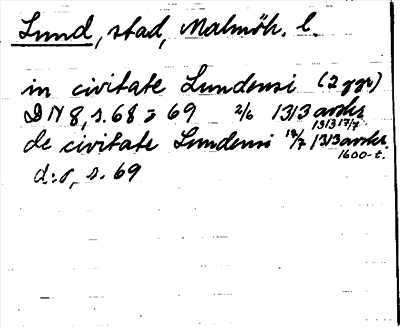 Lund, stad, Malmöh. l.
in civitate Lundensi (2 ggr)
DN 8, s. 68 o 69 2/6 1313 avskr.
1313 17/7
de civitate Lundensi 17/7 1313 avskr.
1600-t.
d:o, s. 69